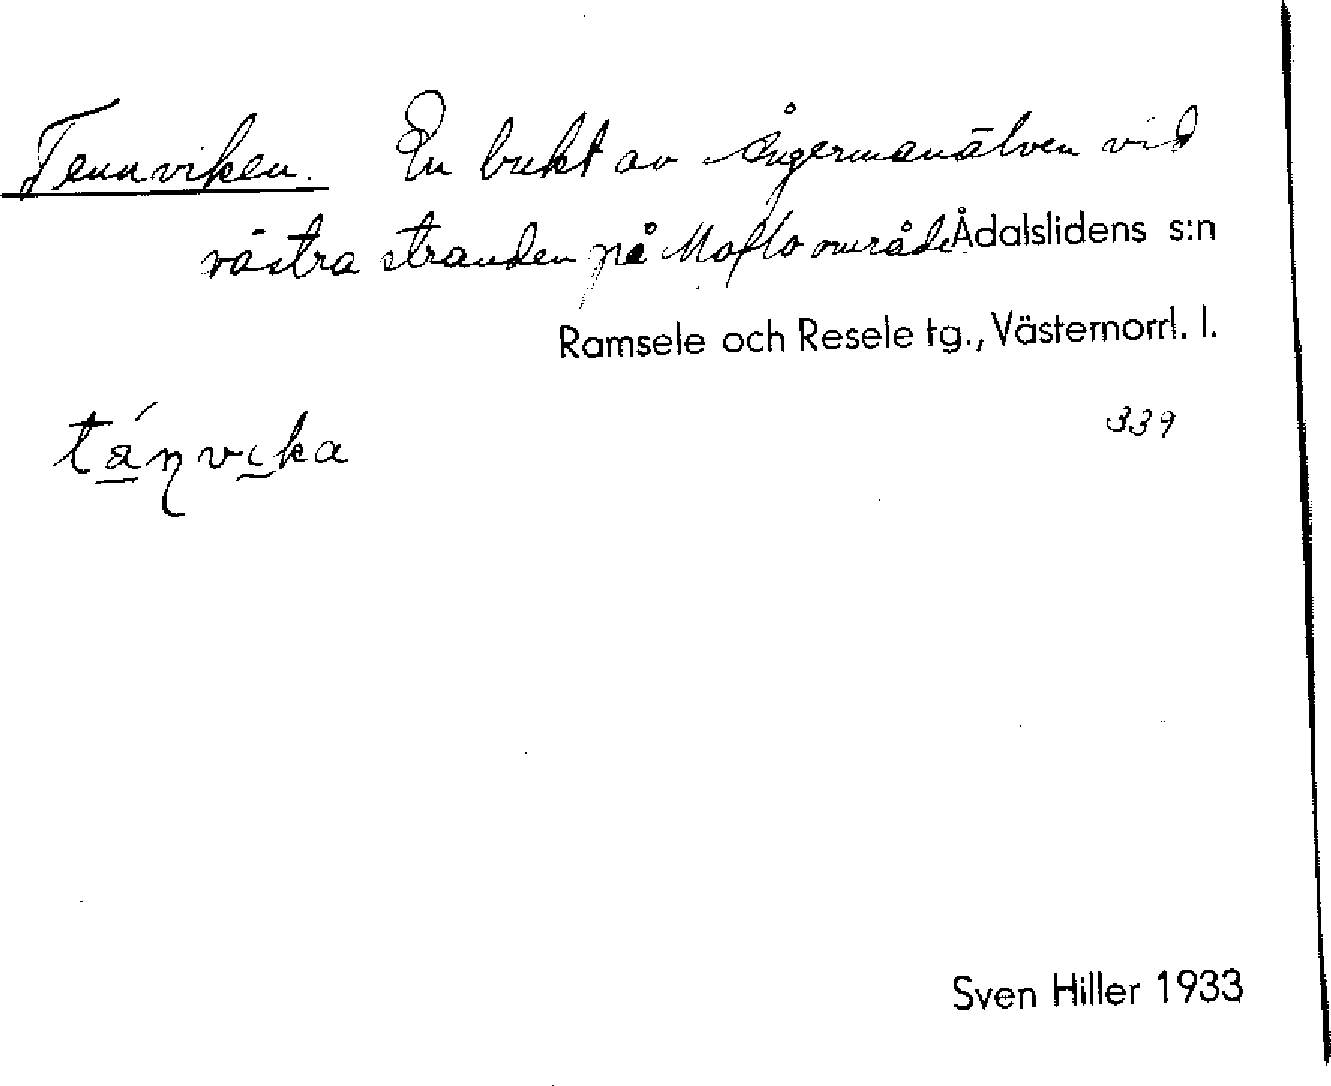 Tennviken. En bukt av Ångermanälven vid
västra stranden på Moflo område
Ådalslidens s:n
Ramsele och Resele tg., Västernorrl. l.
339
Sven Hiller 1933